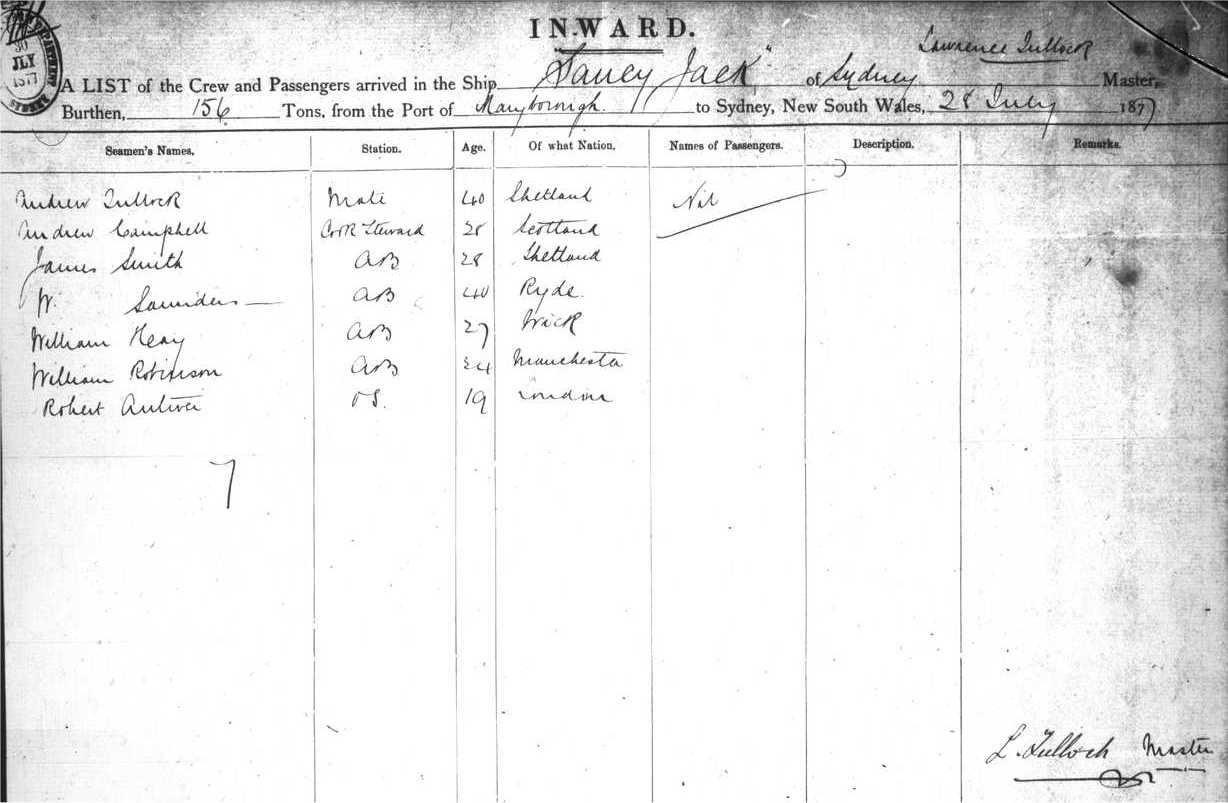 30
JLY
1877
INWARD.
Lawrence Tulloch
A LIST of the Crew and Passengers arrived in the Ship "Saucy Jack" of Sydney Master,
Burthen, 156 Tons, from the Port of Maryborough. to Sydney, New South Wales, 28 July 1877
Seamen's Names. Station. Age. Of what Nation. Names of Passengers. Description. Remarks.
Andrew Tulloch Mate 40 Shetland Nil
Andrew Campbell Cook Steward 28 Scotland
James Smith AB 28 Shetland
W. Saunders AB 40 Ryde.
William Keay AB 27 Wick
William Robinson AB 24 Manchester
Robert OS. 19 London
7
L. Tulloch Master